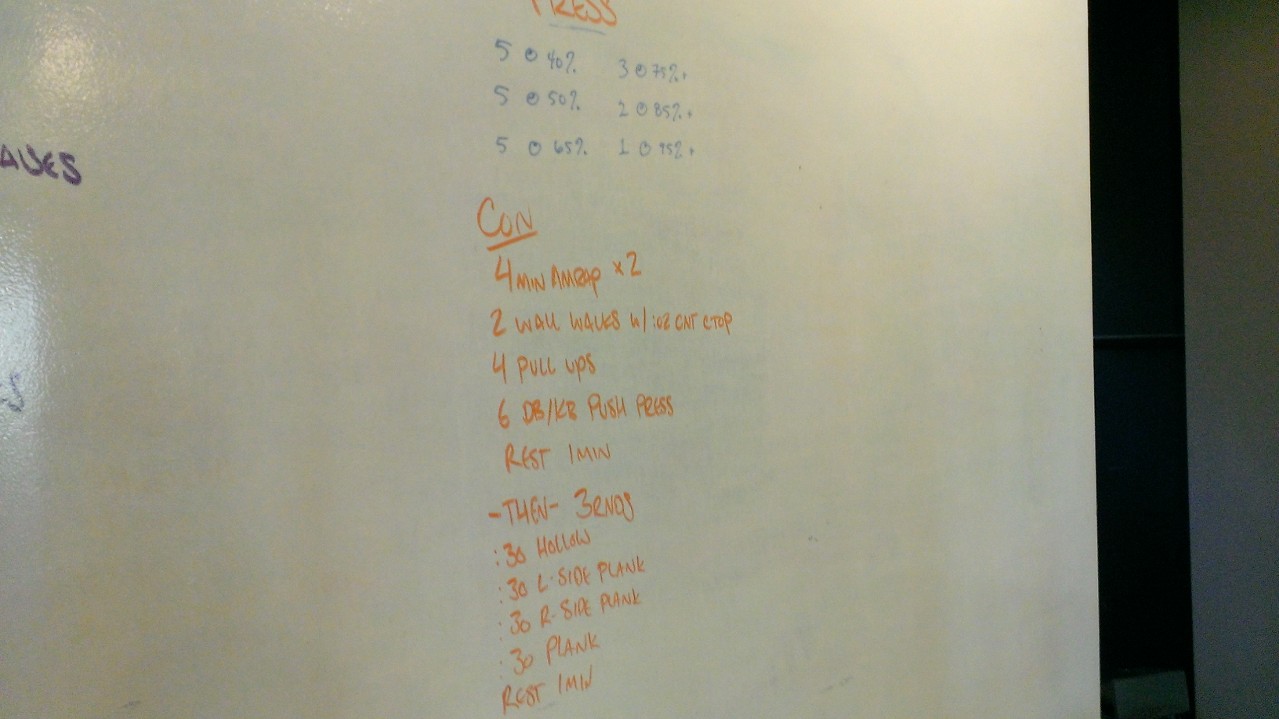 PRESS
5 @ 40% 3 @ 75%+
5 @ 50% 2 @ 85%+
5 @ 65% 1 @ 95%+
CON
4 MIN AMRAP x2
2 WALL WALKS W/ :02 CNT @TOP
4 PULL UPS
6 DB/KB PUSH PRESS
REST 1MIN
-THEN- 3RNDS
:30 HOLLOW
:30 L-SIDE PLANK
:30 R-SIDE PLANK
:30 PLANK
REST 1MIN